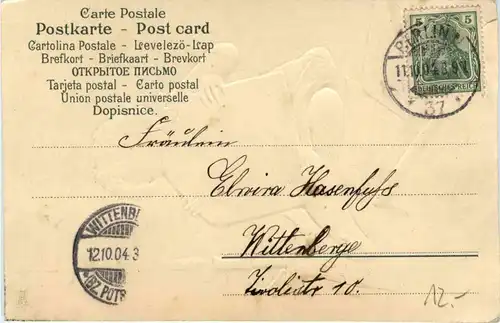 Carte Postale
Postkarte - Post card
Cartolina Postale - Levelező-Lap
Brefkort - Briefkaart - Brevkort
ОТКРЫТОЕ ПИСЬМО
Tarjeta postal - Carto postal
Union postale universelle
Dopisnice.
5 5
BERLIN
11.10.04.
37
Fräulein
Elwira Hasenfuß
Wittenberge
Tivolistr 10.
WITTENBE
12.10.04 3
(BZ. POTS
12.-